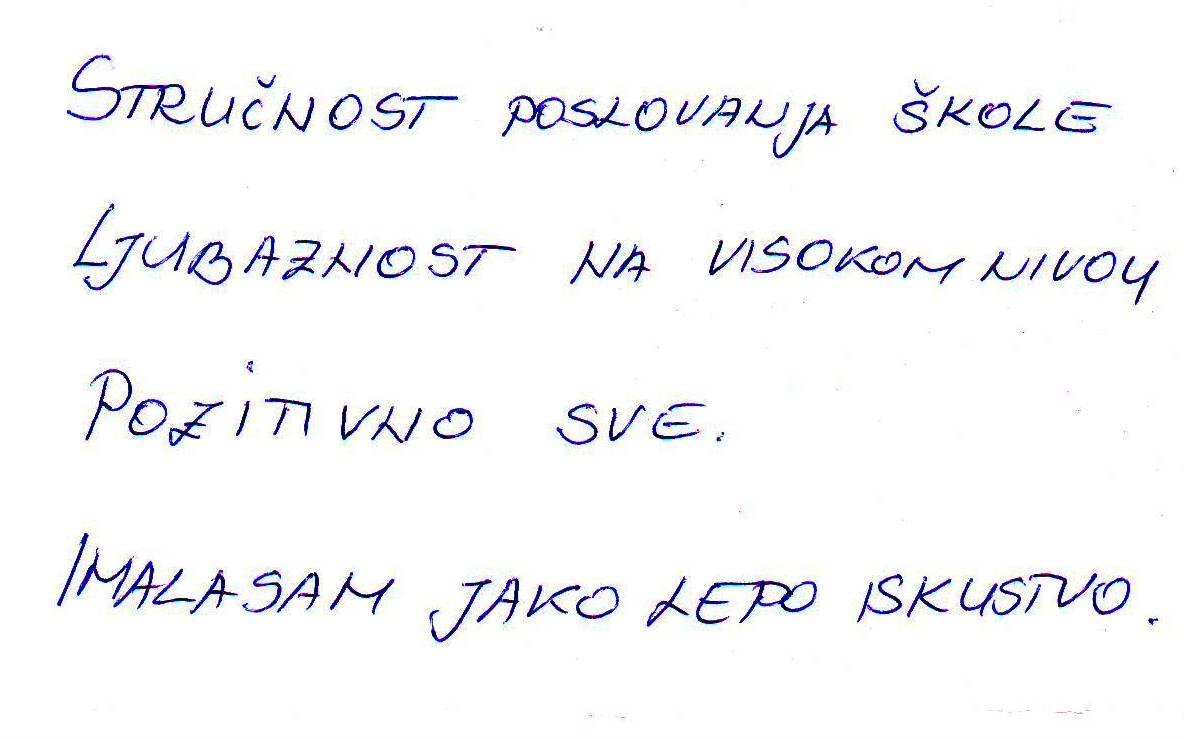 STRUČNOST POSLOVANJA ŠKOLE
LJUBAZNOST NA VISOKOM NIVOU
POZITIVNO SVE.
IMALASAM JAKO LEPO ISKUSTVO.